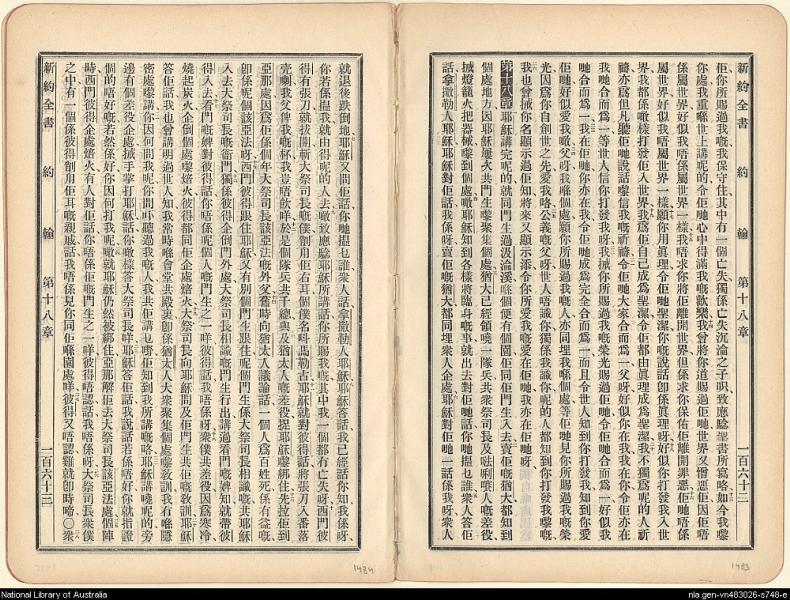 新約全書 約翰 第十八章 一百六十二
佢你所賜過我嘅我保守住其中有一個亡失獨係亡失沉淪之子呮致應騐聖書所寫嘅如今我嚟
你處我重喺世上講呢的令佢哋心中得滿我嘅歡樂我曾將你道賜過佢哋世界又憎惡佢因佢唔
係屬世界好似我唔係屬世界一樣我唔求你將佢離開世界但係求你保佑佢離開罪惡佢哋唔係
屬世界好似我唔屬世界一樣願你用眞理令佢哋聖潔你嘅說話卽係眞理呀好似你打發我入世
界我都係噉樣打發佢入世界我爲佢自己成爲聖潔令佢都由眞理成爲聖潔我不獨爲呢的人祈
禱亦爲但凡聽佢哋說話嚟信我嘅祈禱令佢哋大家合而爲一父呀好似你在我我在你令佢亦在
我哋合而爲一等世人話你打發我呀我𢬿你所賜過我嘅榮光賜過佢哋令佢哋合而爲一好似我
哋合而爲一我在佢哋你亦在我令佢哋成爲完全合而爲一而且令世人知到你打發我知到你愛
佢哋好似愛我噉父呀我喺個處願你所賜過我嘅人亦同埋我喺個處等佢哋見你所賜過我嘅榮
光因爲你自創世之先愛我咯公義嘅父呀世人唔識你獨係我識你呢的人都知到你打發我嚟嘅
我也曾𢬿你名顯示過佢知將來又顯示添令你所愛我嘅愛在佢哋我亦在佢哋呀
第十八章 耶穌講完呢的就同門生過汲淪溪喺個便有個園佢同佢門生入去賣佢嘅猶大都知到
個處地方因耶穌屢次共門生嚟聚集個處猶大已經領嘵一隊兵共衆祭司長及𠵽唎㘔人嘅差役
𢬿燈籠火把器械嚟到個處噉耶穌知到各樣將臨身嘅事就出去對佢哋話你哋搵乜誰衆人答佢
話拿撒勒人耶穌耶穌對佢話我係呀賣佢嘅猶大都同埋衆人企處耶穌對佢哋一話係我呀衆人
就退後跌倒地耶穌又問佢話你哋搵乜誰衆人話拿撒勒人耶穌耶穌答話我已經話你知我係呀
你若係搵我就由得呢的人去噉致應騐耶穌所講話你所賜我嘅其中我一個都冇亡失呀西門彼
得有張刀就拔開斬大祭司長嘅僕割甩佢右耳個僕名呌馬勒古耶穌就對彼得話將張刀入番落
壳喇我父俾我嘅杯我豈唔飲咩於是個隊兵共千總與及猶太人嘅差役捉耶穌嚟綁住先拉佢到
亞那處因爲佢係個年大祭司長該亞法嘅外父舊時向猶太人議論話一個人爲百姓死係有益嘅
卽係呢個該亞法呀西門彼得跟住耶穌又有別個門生跟住呢個門生係大祭司長相識嘅共耶穌
入去大祭司長嘅衙門獨係彼得企倒門外處大祭司長相識嘅門生行出講過看門嘅婢就帶彼
得入去看門嘅婢對彼得話你唔係呢個人門生之一咩彼得話我唔係呀衆僕共差役因爲寒冷
燒起炭火企倒個處嚟焙火彼得都同佢企處焙火大祭司長向耶穌問及佢門生共佢嘅敎訓耶穌
答佢話我也曾講明過世人知我常時喺會堂共殿裏卽係猶太人大衆聚集個處嚟敎訓我冇喺隱
密處嚟講你因何問我呢你問吓聽過我嘅人我共佢講乜嘢佢知到我所講嘅咯耶穌講嘵呢的旁
邊有個差役企處𢬿手掌打耶穌話你噉樣答大祭司長咩耶穌答佢話我說話若係唔好你就指證
個的唔好嘅若然係好你因何打我呢噉就耶穌仍然被綁住亞那解佢去大祭司長該亞法處個陣
時西門彼得企處焙火有人對佢話你唔係佢嘅門生之一咩彼得唔認話我唔係呀大祭司長衆僕
之中有一個係彼得削甩佢耳嘅親戚話我唔係見你同佢喺園處咩彼得又唔認雞就卽時啼○衆
新約全書 約翰 第十八章 一百六十三
1434
1433
National Library of Australia
nla.gen-vn483026-s748-e